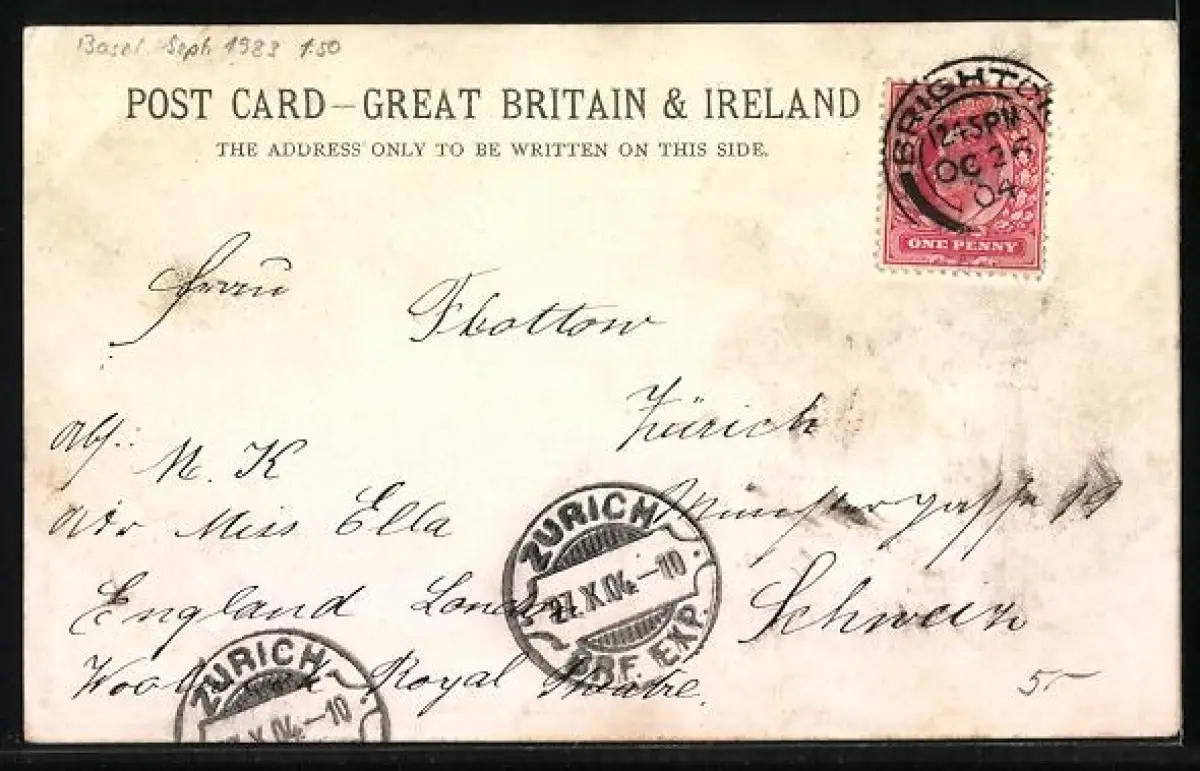 Basel Sept. 1983 1.50
POST CARD—GREAT BRITAIN & IRELAND
THE ADDRESS ONLY TO BE WRITTEN ON THIS SIDE.
BRIGHTON
12.45PM
OC 26
04
ONE PENNY
Frau
Zürich
M. K
Miss Ella
Münstergasse 19
England London
Schweiz
Royal Theatre.
ZÜRICH
27.X.04.-10
BRF. EXP.
ZÜRICH
X.04.-10
5